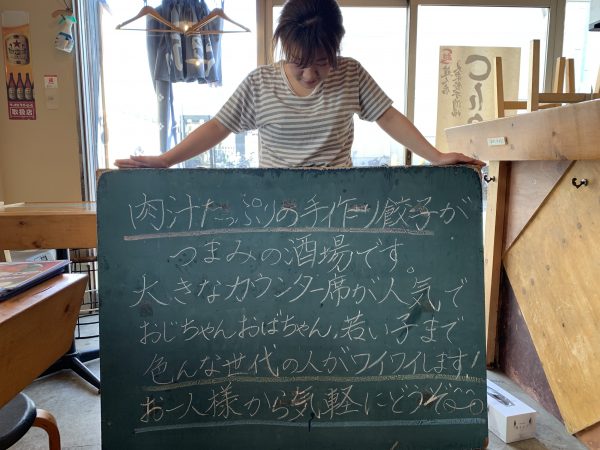 肉汁たっぷりの手作り餃子が
つまみの酒場です。
大きなカウンター席が人気で
おじちゃんおばちゃん、若い子まで
色んな世代の人がワイワイします!
お一人様から気軽にどうぞ〜
取扱店